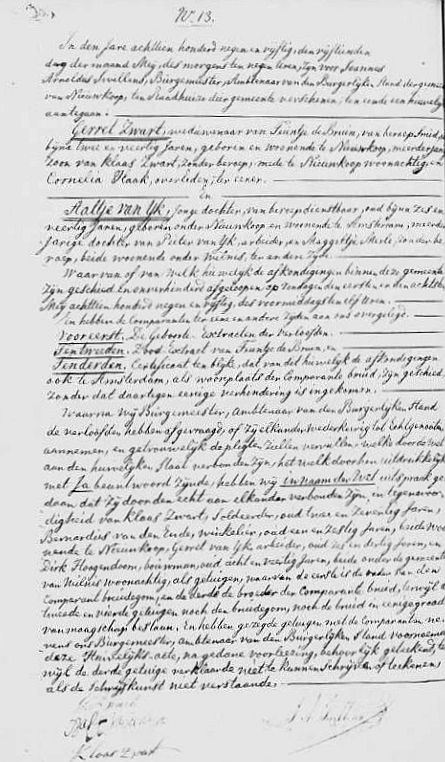 N.º 13.
In den Jare achttien honderd negen en vyftig, den vyftienden
dag der maand Mey, des morgens ten negen Uren, zyn voor Joannus
Arnoldus Sevellens, Burgemeester, Ambtenaar van den Burgerlyken Stand der gemeente
van Nieuwkoop, ten Raadhuize dier gemeente verschenen, ten einde een huwelyk
aantegaan:
Gerret Zwart, weduwnaar van Tuintje de Bruin, van beroep smid, oud
byna twee en veertig Jaren, geboren en wonende te Nieuwkoop, meerderjarige
Zoon van Klaas Zwart, zonder beroep, mede te Nieuwkoop woonachtig en
Cornelia Haak, overleden, ter eener.
en
Aaltje van Yk, Jonge dochter, van beroep dienstbaar, oud byna zes en
veertig Jaren, geboren onder Nieuwkoop en wonende te Amsterdam, meerder-
jarige dochter van Pieter van Yk, arbeider, en Maggeltje Merle, zonder be-
roep, beide wonende onder Wilnes, ter andere zyde.
Waarvan of van welk huwelyk de afkondigingen binnen deze gemeente
zyn geschied en onverhinderd afgeloopen op Zondagen den eersten en den achtsten
Mey achttien honderd negen en vyftig, des voormiddags ten elf uren.
En hebben de Comparanten ter eene en andere zyden aan ons overgelegd:
Vooreerst, De Geboorte-Extracten der Verloofden.
Ten tweeden, Dood Extract van Tuintje de Bruin, en
Ten derden, Certificaat ten blyke, dat van dit huwelyk de afkondigingen
ook te Amsterdam, als woonplaats der Comparante bruid, zyn geschied,
zonder dat daartegen eenige verhindering is ingekomen.
Waarna Wy Burgemeester, Ambtenaar van den Burgerlyken Stand
de verloofden hebben afgevraagd, of zy elkander wederkeerig tot Echtgenooten
aannemen, en getrouwelyk de pligten zullen vervullen, welke door de wet
aan den huwelyken Staat verbonden zyn, het welk door hen uitdrukkelyk
met Ja beantwoord zynde, hebben wy in naam der Wet uitspraak ge-
daan, dat zy door den echt aan elkander verbonden zyn, in tegenwoor-
digheid van Klaas Zwart, Soldeerder, oud twee en zeventig Jaren,
Bernardus van den Ende, Winkelier, oud een en zestig Jaren, beide wo-
nende te Nieuwkoop, Gerret van Yk, arbeider, oud zes en dertig Jaren, en
Dirk Hoogendoorn, bouwman, oud acht en veertig Jaren, beide onder de gemeente
van Wilnis woonachtig, als getuigen, waarvan de eerste is de vader van den
Comparant bruidegom, en de derde de broeder der Comparante bruid, terwyl de
tweede en vierde getuigen noch den bruidegom, noch de bruid in eenige graad
van maagschap bestaan. En hebben gezegde getuigen met de Comparanten ne-
vens ons Burgemeester, Ambtenaar van den Burgerlyken Stand voornoemd
deze Huwelyks-acte, na gedane voorlezing, behoorlyk geteekend, ter-
wyl de derde getuige verklaarde niet te kunnen schryven of teekenen
als de Schryfkunst niet verstaande.
Klaas Zwart